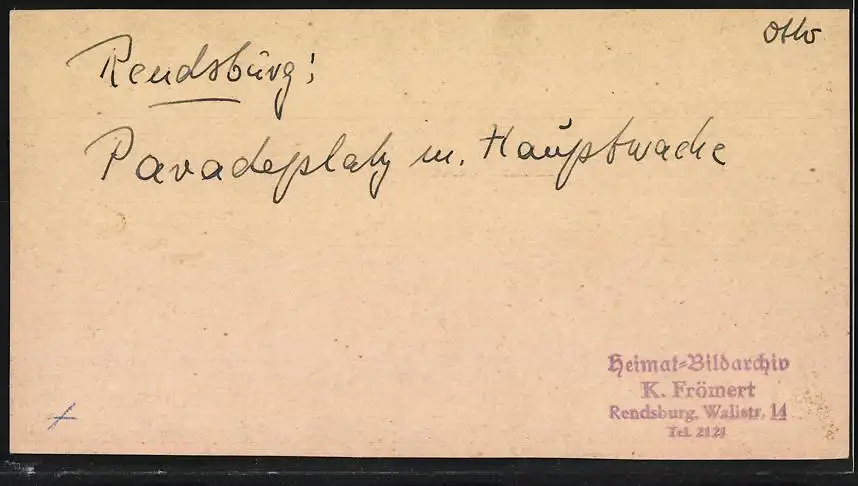 Otto
Rendsburg:
Paradeplatz m. Hauptwache
Heimat-Bildarchiv
K. Frömert
Rendsburg, Wallstr. 14
Tel. 2121